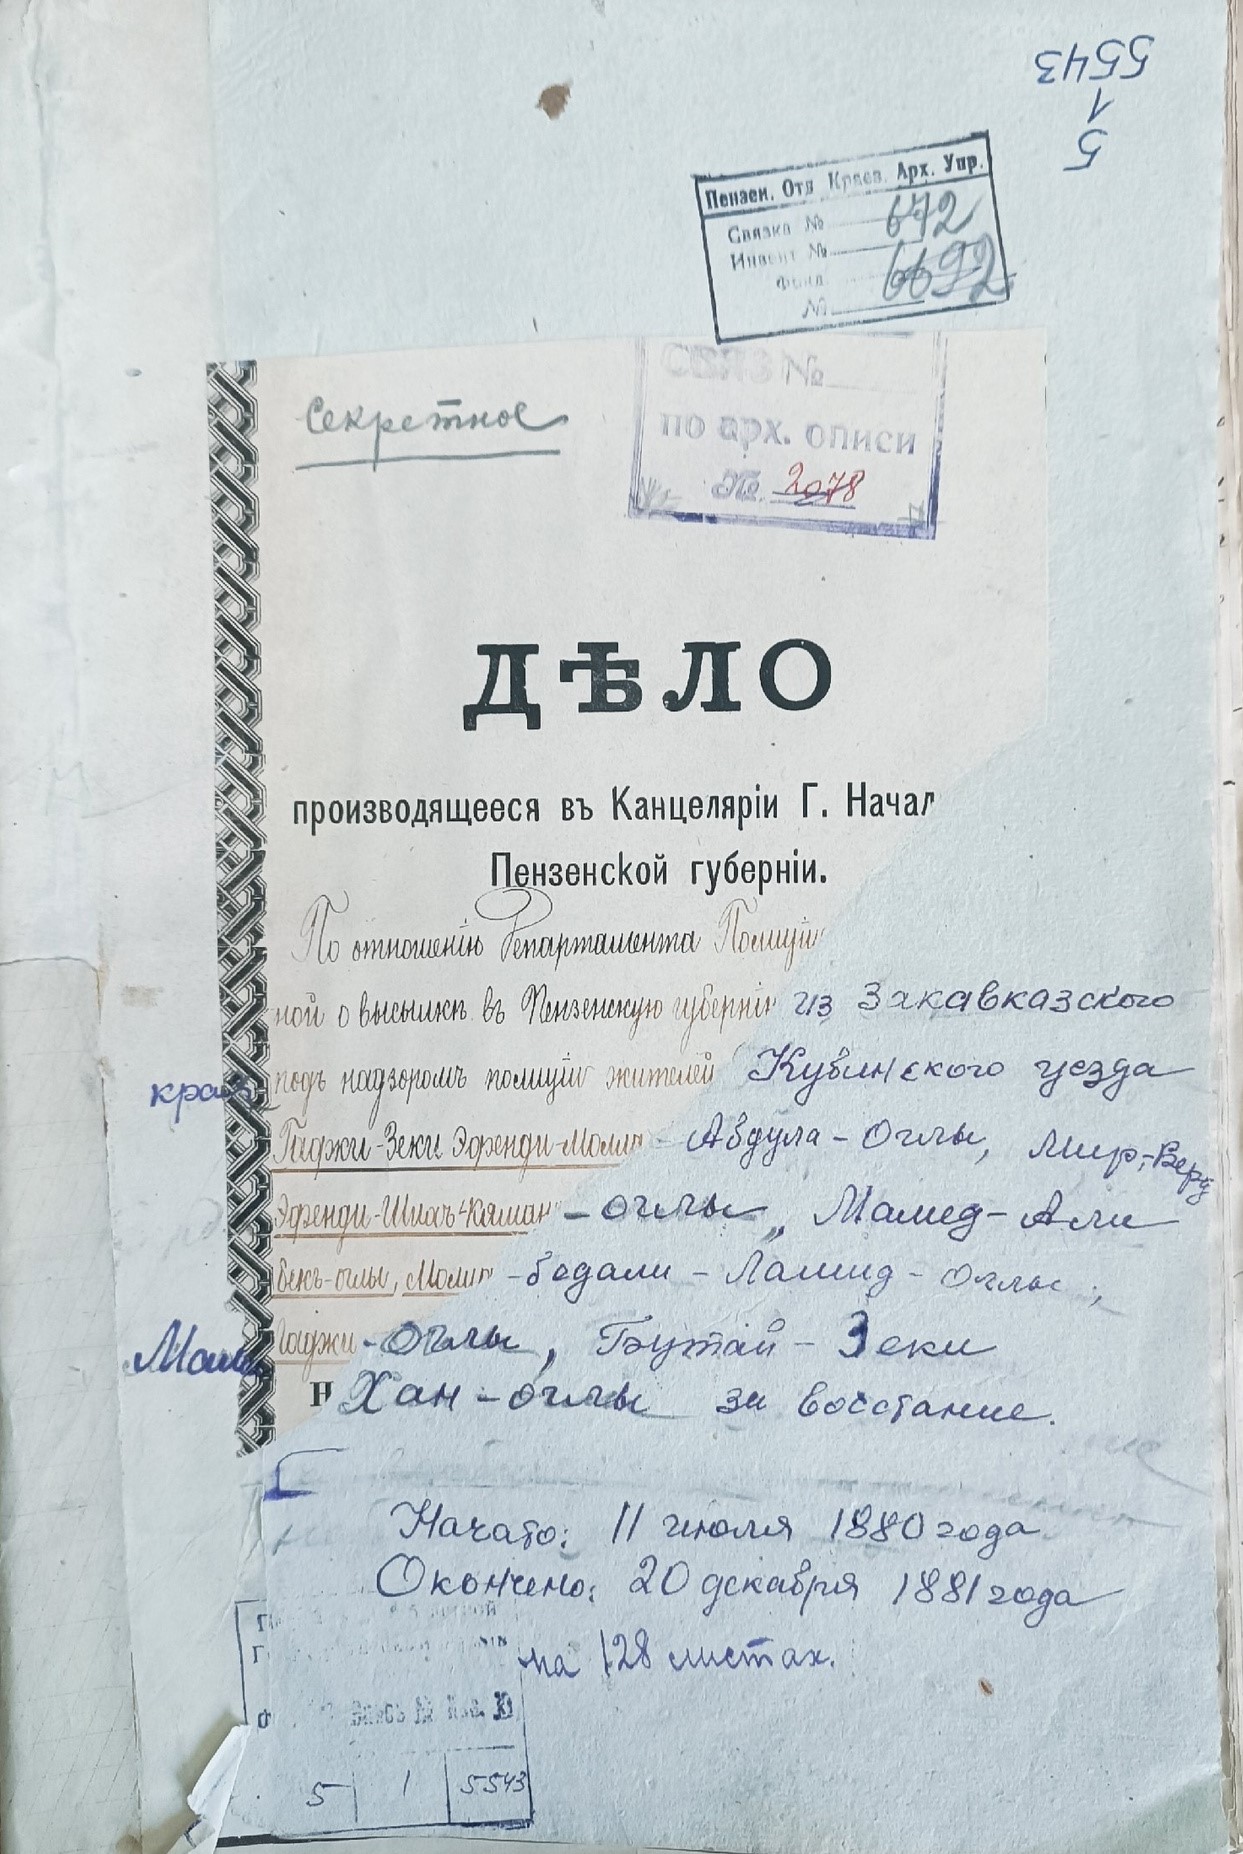 5543
1
5
Пензен. Отд Краев. Арх. Упр.
Связка № 672
Инвент № 6692
Фонд
№
Секретное
СВЯЗ №
по арх. описи
№ 2078
ДѢЛО
производящееся въ Канцеляріи Г. Начал
Пензенской губерніи.
По отношенію Департамента Полиціи
ной о высылкѣ въ Пензенскую губернію из Закавказского
края подъ надзоромъ полиціи жителей Кубинского уезда
Гаджи-Зеки Эфенди-Молла-Абдула-Оглы, Мир-Вери
Эфенди-Шихъ-Кяман-оглы, Мамед-Али
Бекъ-оглы, Молла-бедали-Ламид-Оглы,
Мамед Гаджи-Оглы, Гэутай-Зеки
Н Хан-оглы за восстание.
Начато: 11 июля 1880 года
Окончено: 20 декабря 1881 года
на 128 листах.
5 1 5543